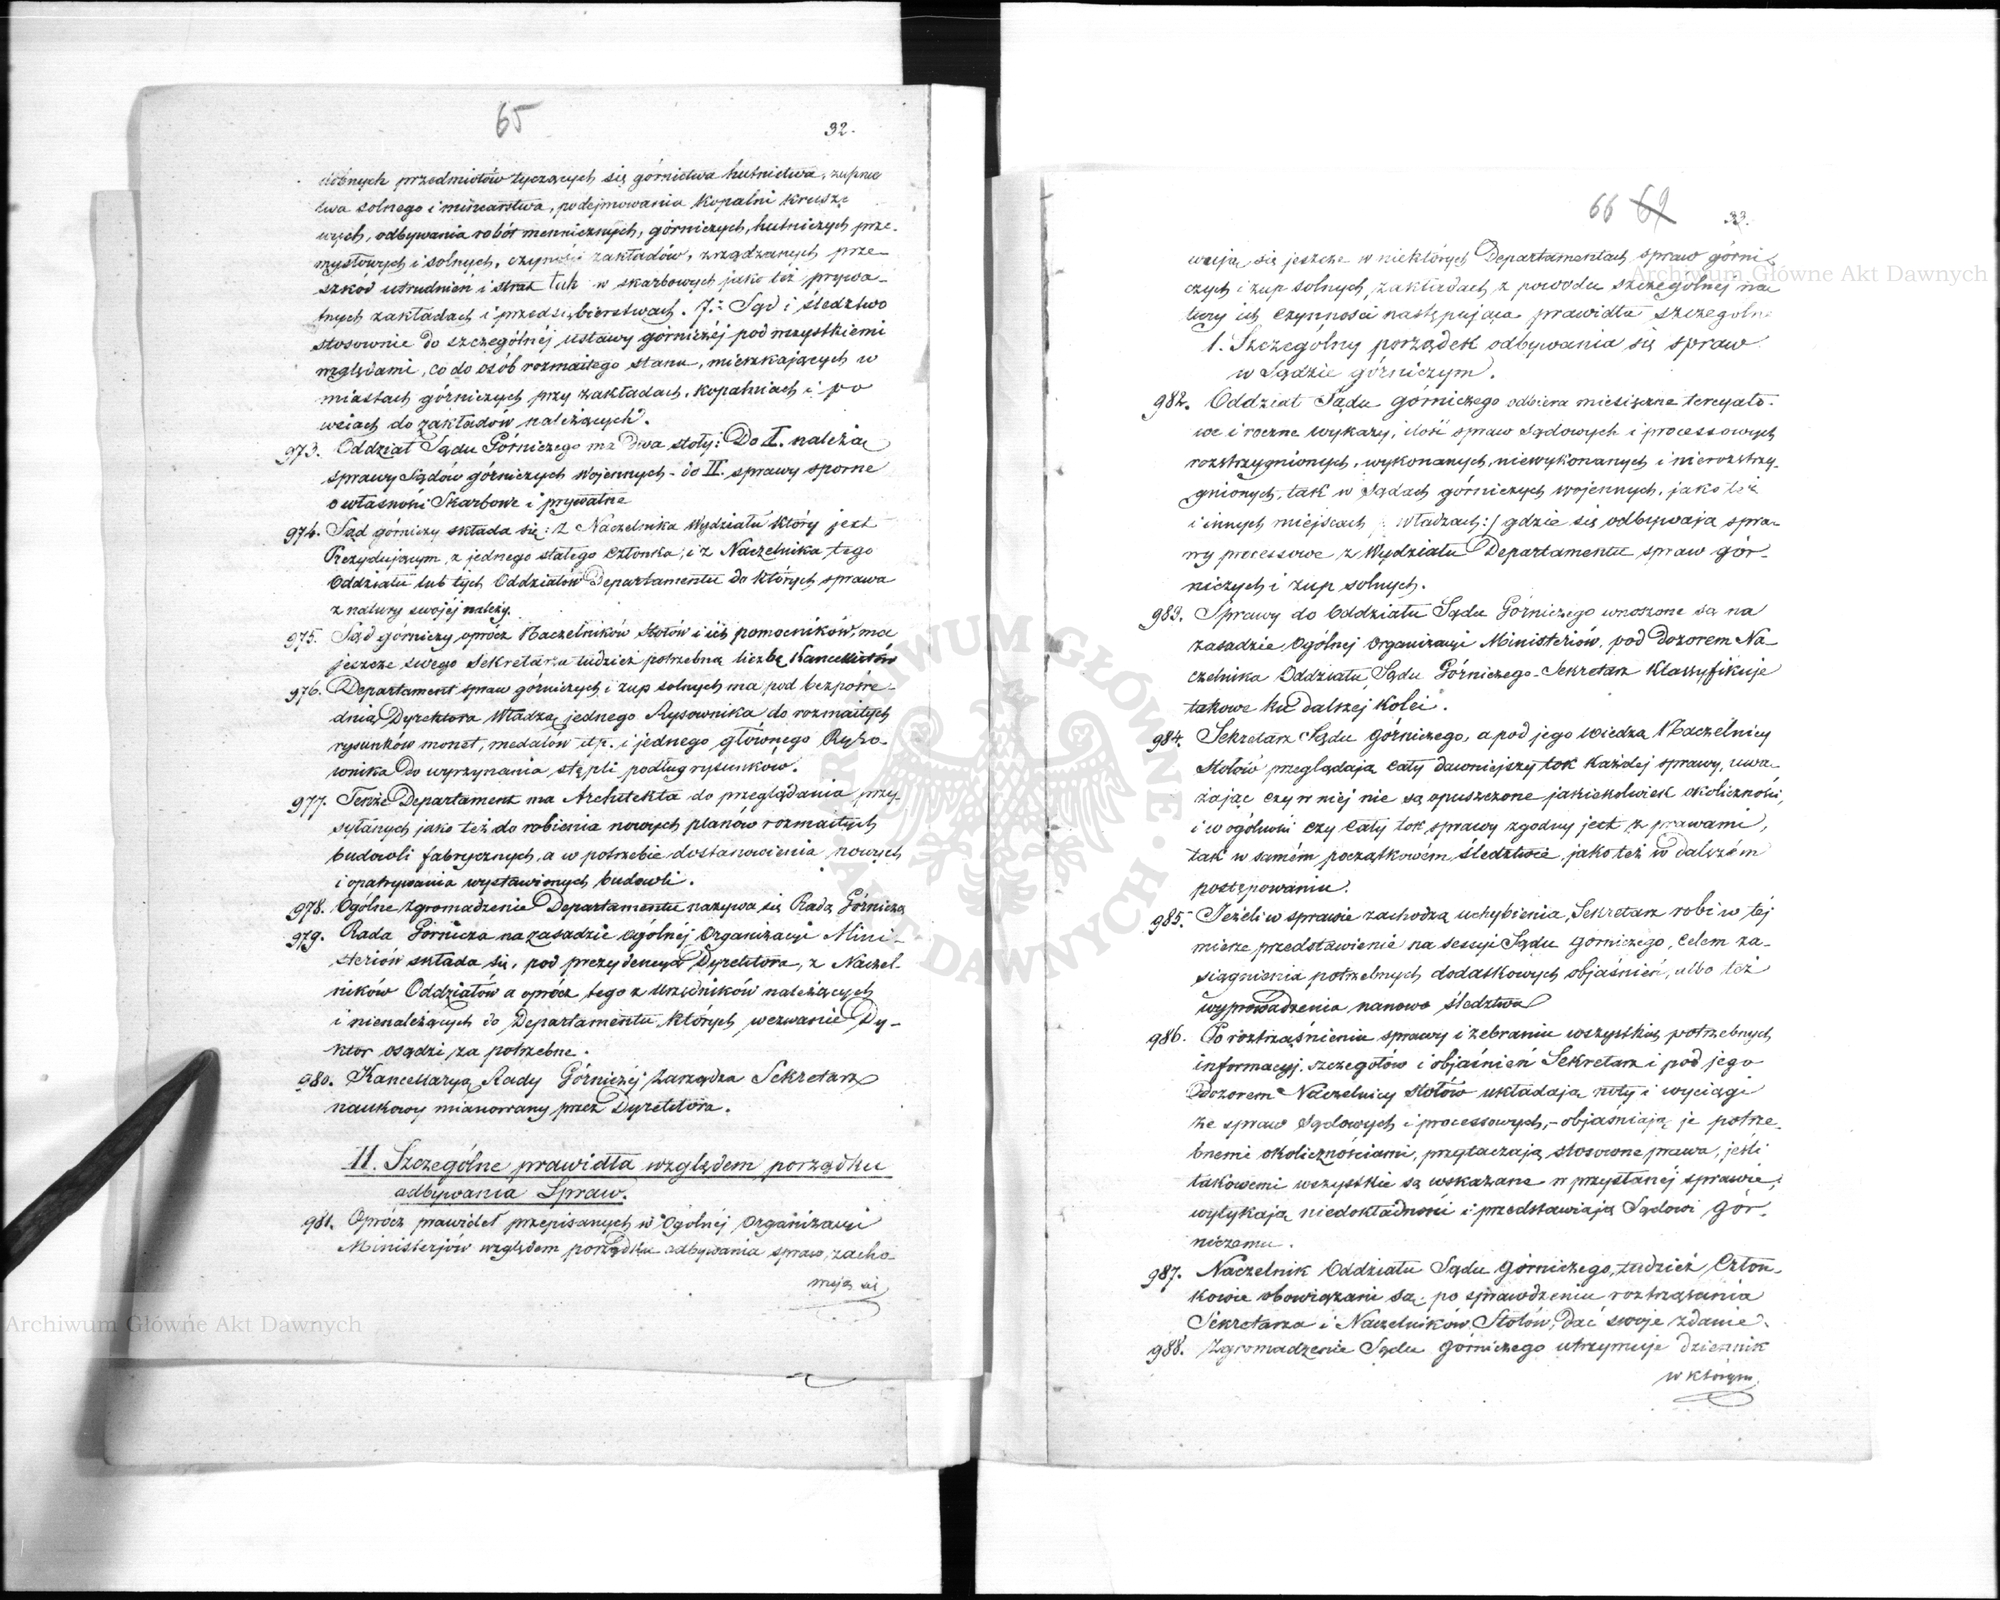 65
32.
dobnych przedmiotów tyczących się górnictwa hutnictwa, zupnic
twa solnego i mincarstwa, podejmowania kopalni kruszc
wych, odbywania robót mennicznych, górniczych, hutniczych prze-
mysłowych i solnych, czynności zakładów, zrządzanych prze-
szkod utrudnień i strat tak w skarbowych jako też prywa-
tnych zakładach i przedsiębierstwach. 7. Sąd i śledztwo
stosownie do szczególnéj ustawy górniczéj pod wszystkiemi
względami, co do osób rozmaitego stanu, mieszkających w
miastach górniczych przy zakładach, kopalniach i po
wsiach do zakładów należących.
973. Oddział Sądu Górniczego ma dwa stoły: Do I. należą
sprawy Sądów górniczych wojennych - do II. sprawy sporne
o własności Skarbowe i prywatne
974. Sąd górniczy składa się: z Naczelnika Wydziału który jest
Prezydującym, z jednego stałego członka, i z Naczelnika tego
Oddziału lub tych Oddziałów Departamentu do których sprawa
z natury swojéj należy.
975. Sąd górniczy oprócz Naczelników Stołów i ich pomocników, ma
jeszcze swego Sekretarza tudzież potrzebną liczbę Kancellistów
976. Departament spraw górniczych i zup solnych ma pod bezpośre-
dnią Dyrektora Władzą jednego Rysownika do rozmaitych
rysunków monet, medalów itp. i jednego głównego Ryso
wnika do wyrzynania stępli podług rysunków.
977. Tenże Departament ma Architekta do przeglądania przy-
syłanych jako też do robienia nowych planów rozmaitych
budowli fabrycznych, a w potrzebie do stanowienia nowych
i opatrywania wystawionych budowli.
978. Ogólne zgromadzenie Departamentu nazywa się Radą Górniczą
979. Rada Górnicza na zasadzie ogólnej Organizacyi Mini-
steriów składa się, pod prezydencyą Dyrektora, z Naczel-
ników Oddziałów a oprócz tego z Urzędników należących
i nienależących do Departamentu, których wezwanie Dy-
ktor osądzi za potrzebne.
980. Kancellaryą Rady Górniczéj zarządza Sekretarz
naukowy mianowany przez Dyrektora.
II. Szczególne prawidła względem porządku
odbywania Spraw.
981. Oprócz prawideł przepisanych w Ogólnéj Organizacyi
Ministerjów względem porządku odbywania spraw, zacho-
wują się
66 69
33.
wują się jeszcze w niektórych Departamentach spraw górni-
czych i zup solnych, zakładach z powodu szczególnéj na
tury ich czynności następujące prawidła szczególne
1. Szczególny porządek odbywania się spraw
w Sądzie górniczym.
982. Oddział Sądu górniczego odbiera miesięczne tercyało-
we i roczne wykazy, ilość spraw sądowych i processowych
rozstrzygnionych, wykonanych, niewykonanych i nierozstrzy-
gnionych, tak w Sądach górniczych wojennych, jako też
i innych miejscach /: władzach:/ gdzie się odbywają spra-
wy processowe z Wydziału Departamentu spraw gór-
niczych i zup solnych.
983. Sprawy do Oddziału Sądu Górniczego wnoszone są na
zasadzie Ogólnej Organizacyi Ministeriów, pod dozorem Na-
czelnika Oddziału Sądu Górniczego. Sekretarz klassyfikuje
takowe ku dalszéj kolei.
984. Sekretarz Sądu górniczego, a pod jego wiedzą Naczelnicy
Stołów przeglądają cały dawniejszy tok każdej sprawy, uwa-
żając czy w niéj nie są opuszczone jakiekolwiek okoliczności,
i w ogólności czy cały tok sprawy zgodny jest z prawami,
tak w samém początkowém śledztwie, jako też w dalszém
postępowaniu.
985. Jeżeli w sprawie zachodzą uchybienia, Sekretarz robi w téj
mierze przedstawienie na sessyi Sądu górniczego, celem za-
siągnienia potrzebnych dodatkowych objaśnień, albo też
wyprowadzenia nanowo śledztwa
986. Po roztrząśnieniu sprawy i zebraniu wszystkich potrzebnych
informacyj, szczegółów i objaśnień Sekretarz i pod jego
dozorem Naczelnicy Stołów układają noty i wyciągi
ze spraw Sądowych i processowych,- objaśniają je potrze-
bnemi okolicznościami, przytaczają stosowne prawa, jeśli
takowemi wszystkie są wskazane w przysłanéj sprawie,
wytykają niedokładności i przedstawiają Sądowi Gór-
niczemu.
987. Naczelnik Oddziału Sądu Górniczego, tudzież Człon-
kowie obowiązani są po sprawdzeniu roztrząsania
Sekretarza i Naczelników Stołów, dać swoje zdanie.
988. Zgromadzenie Sądu Górniczego utrzymuje dziennik
w którym
Archiwum Główne Akt Dawnych
Archiwum Główne Akt Dawnych
ARCHIWUM GŁÓWNE · AKT DAWNYCH ·